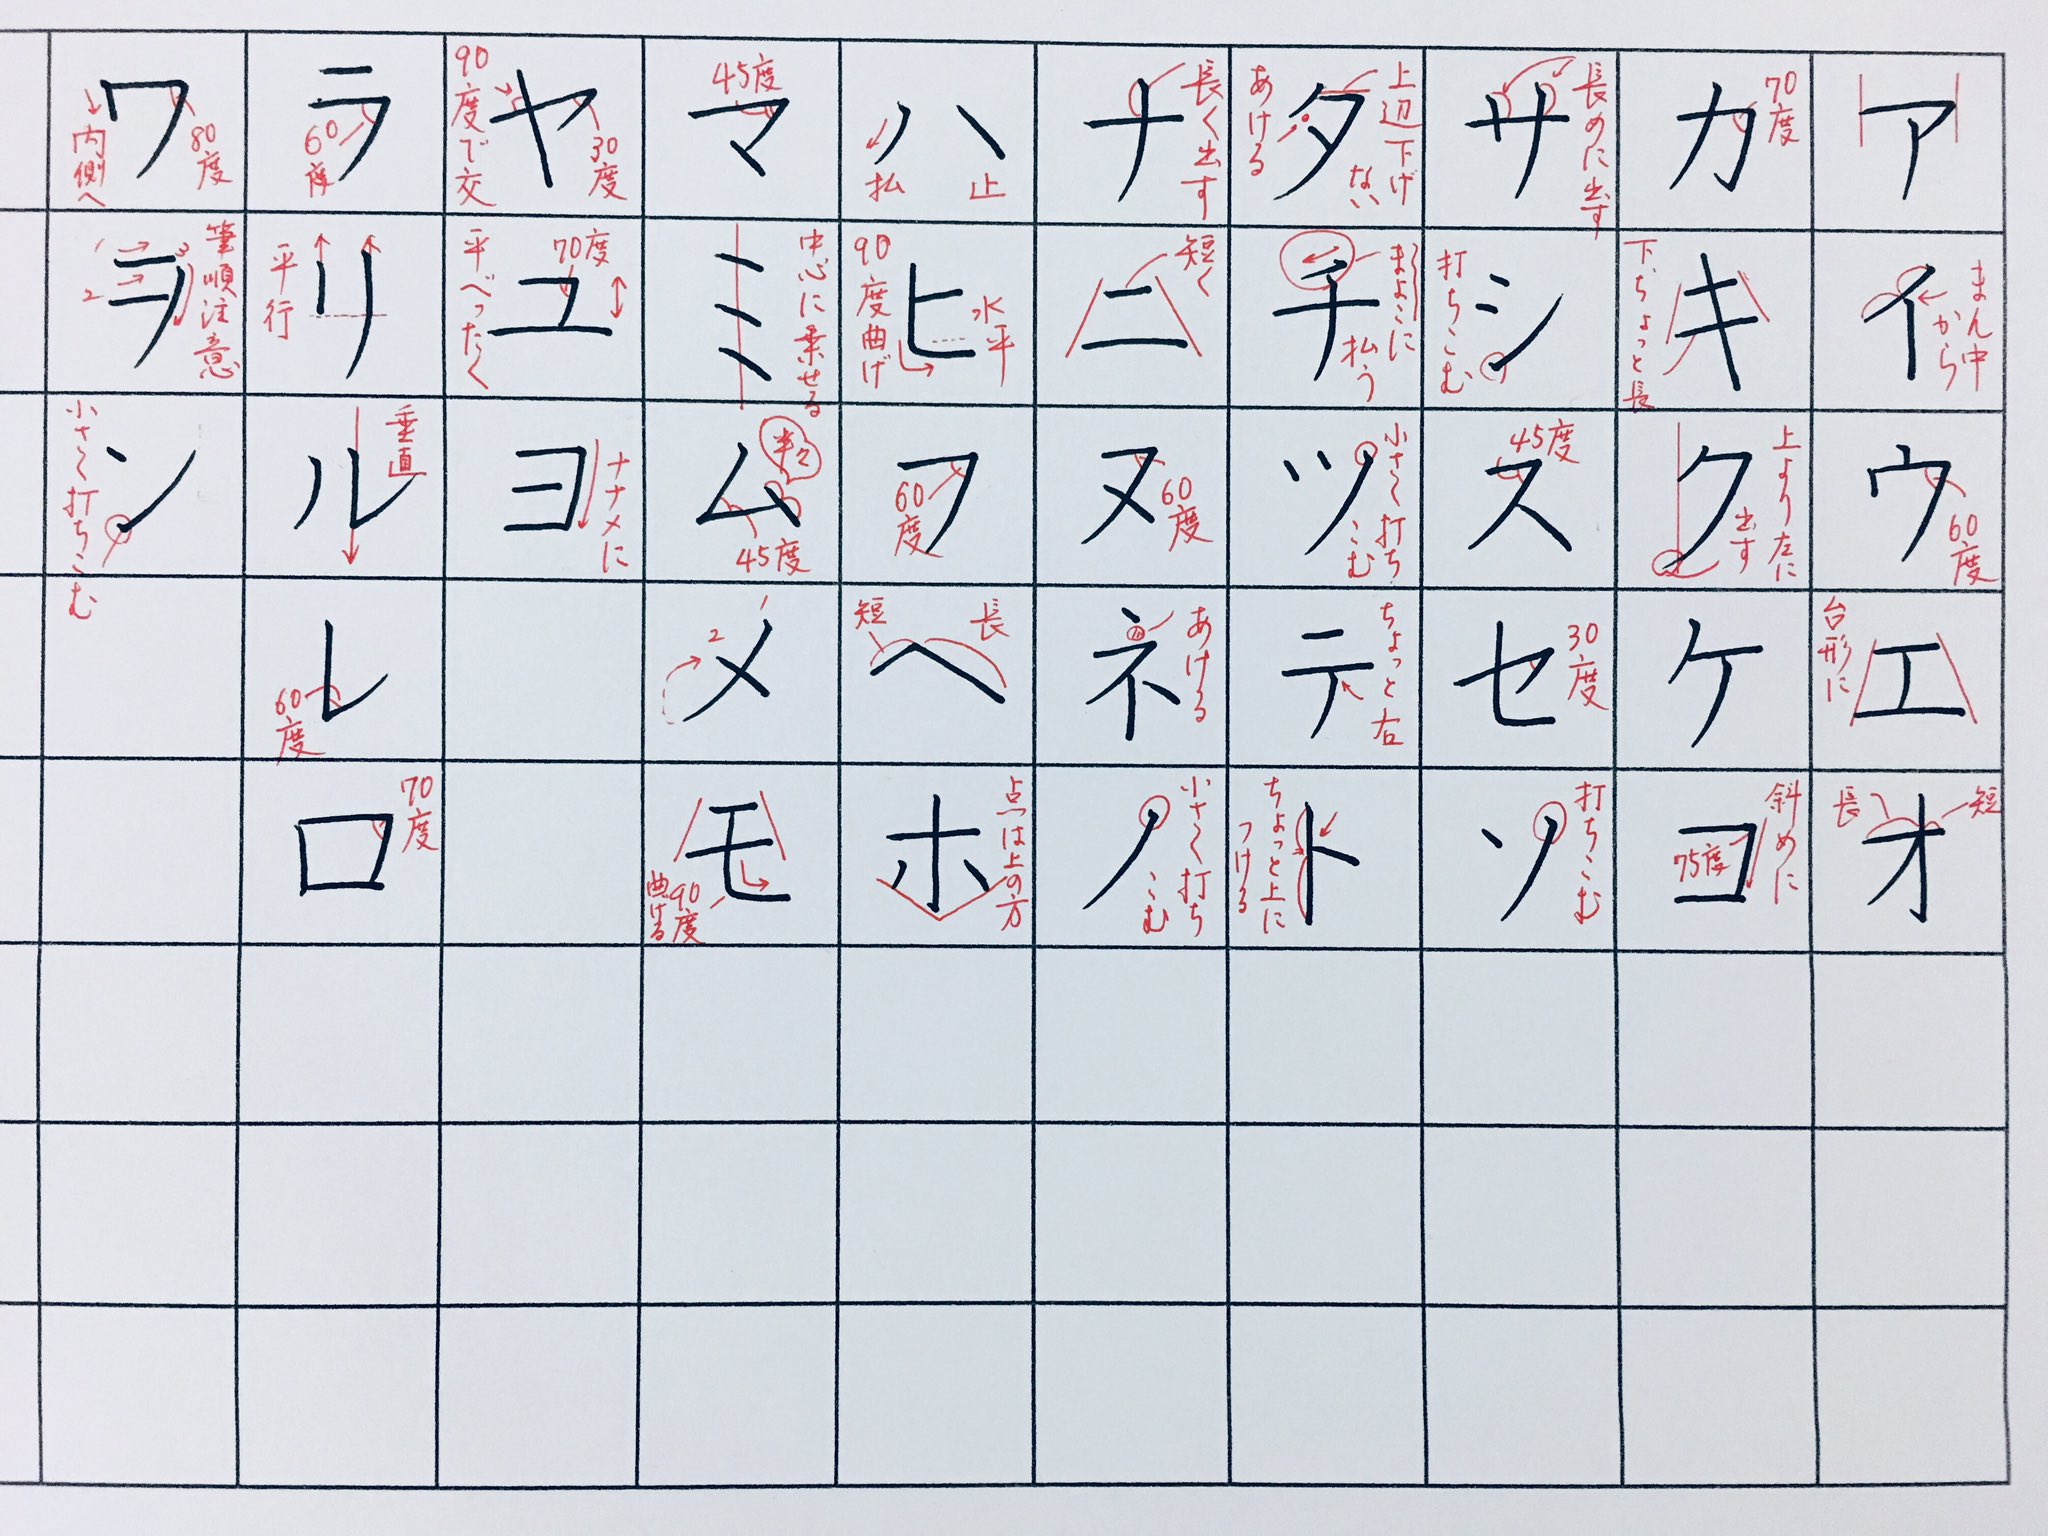 ア
イ
まん中
から
ウ
60度
エ
台形に
オ
長
短
カ
70度
キ
下、ちょっと長
ク
上より左に
出す
ケ
コ
斜めに
75度
サ
長めに出す
シ
打ちこむ
ス
45度
セ
30度
ソ
打ちこむ
タ
上辺下げ
ない
あける
チ
まよこに
払う
ツ
小さく打ち
こむ
テ
ちょっと右
ト
ちょっと上に
つける
ナ
長く出す
ニ
短く
ヌ
60度
ネ
あける
ノ
小さく打ち
こむ
ハ
払
止
ヒ
90度曲げ
水平
フ
60度
ヘ
短
長
ホ
点は上の方
マ
45度
ミ
中心に乗せる
ム
半々
45度
メ
1
2
モ
90度
曲げる
ヤ
90度で交
30度
ユ
70度
平べったく
ヨ
ナナメに
ラ
60度
リ
平行
ル
垂直
レ
60度
ロ
70度
ワ
内側へ
80度
ヲ
筆順注意
1
2
3
ン
小さく打ちこむ